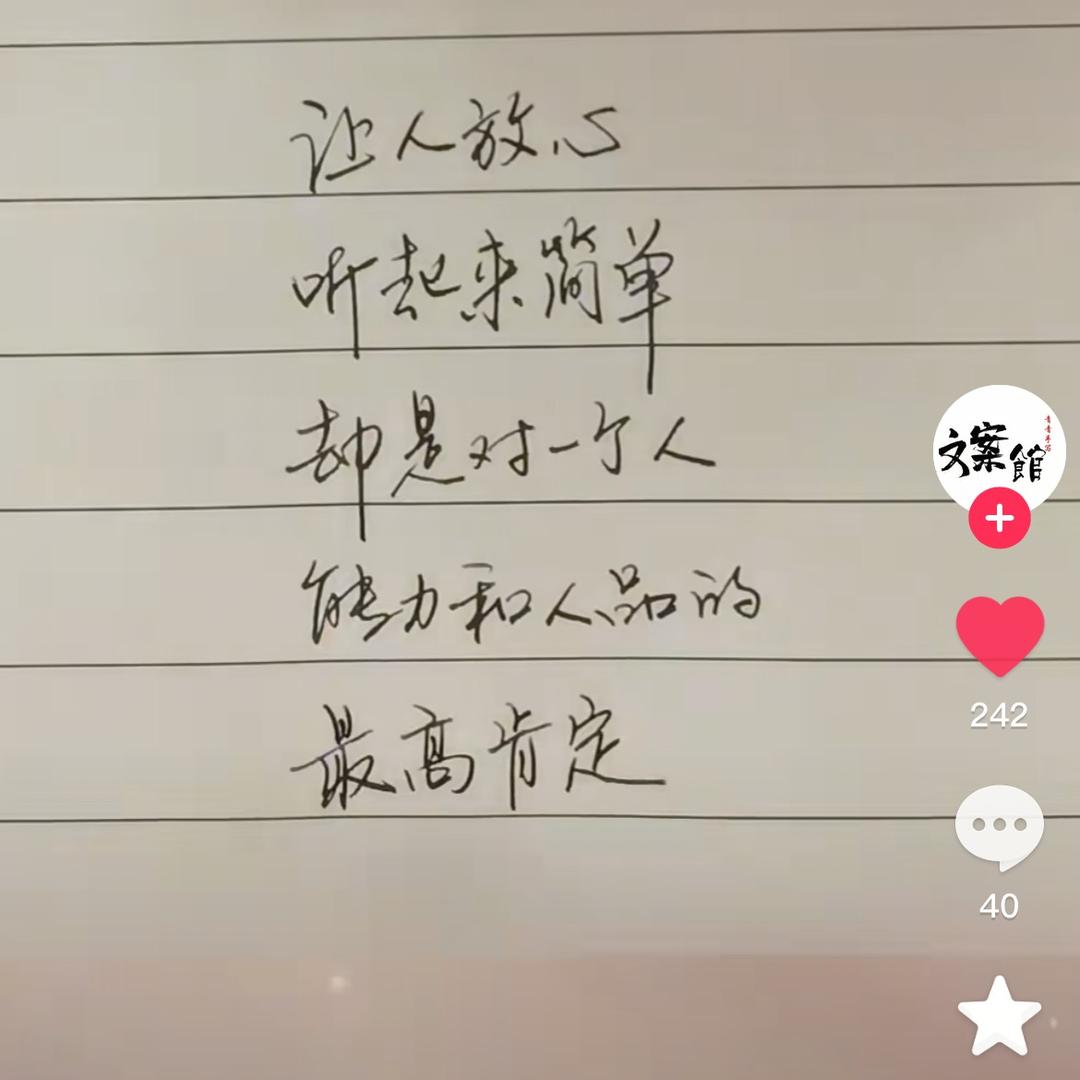 让人放心
听起来简单
却是对一个人
能力和人品的
最高肯定
文案馆
242
40